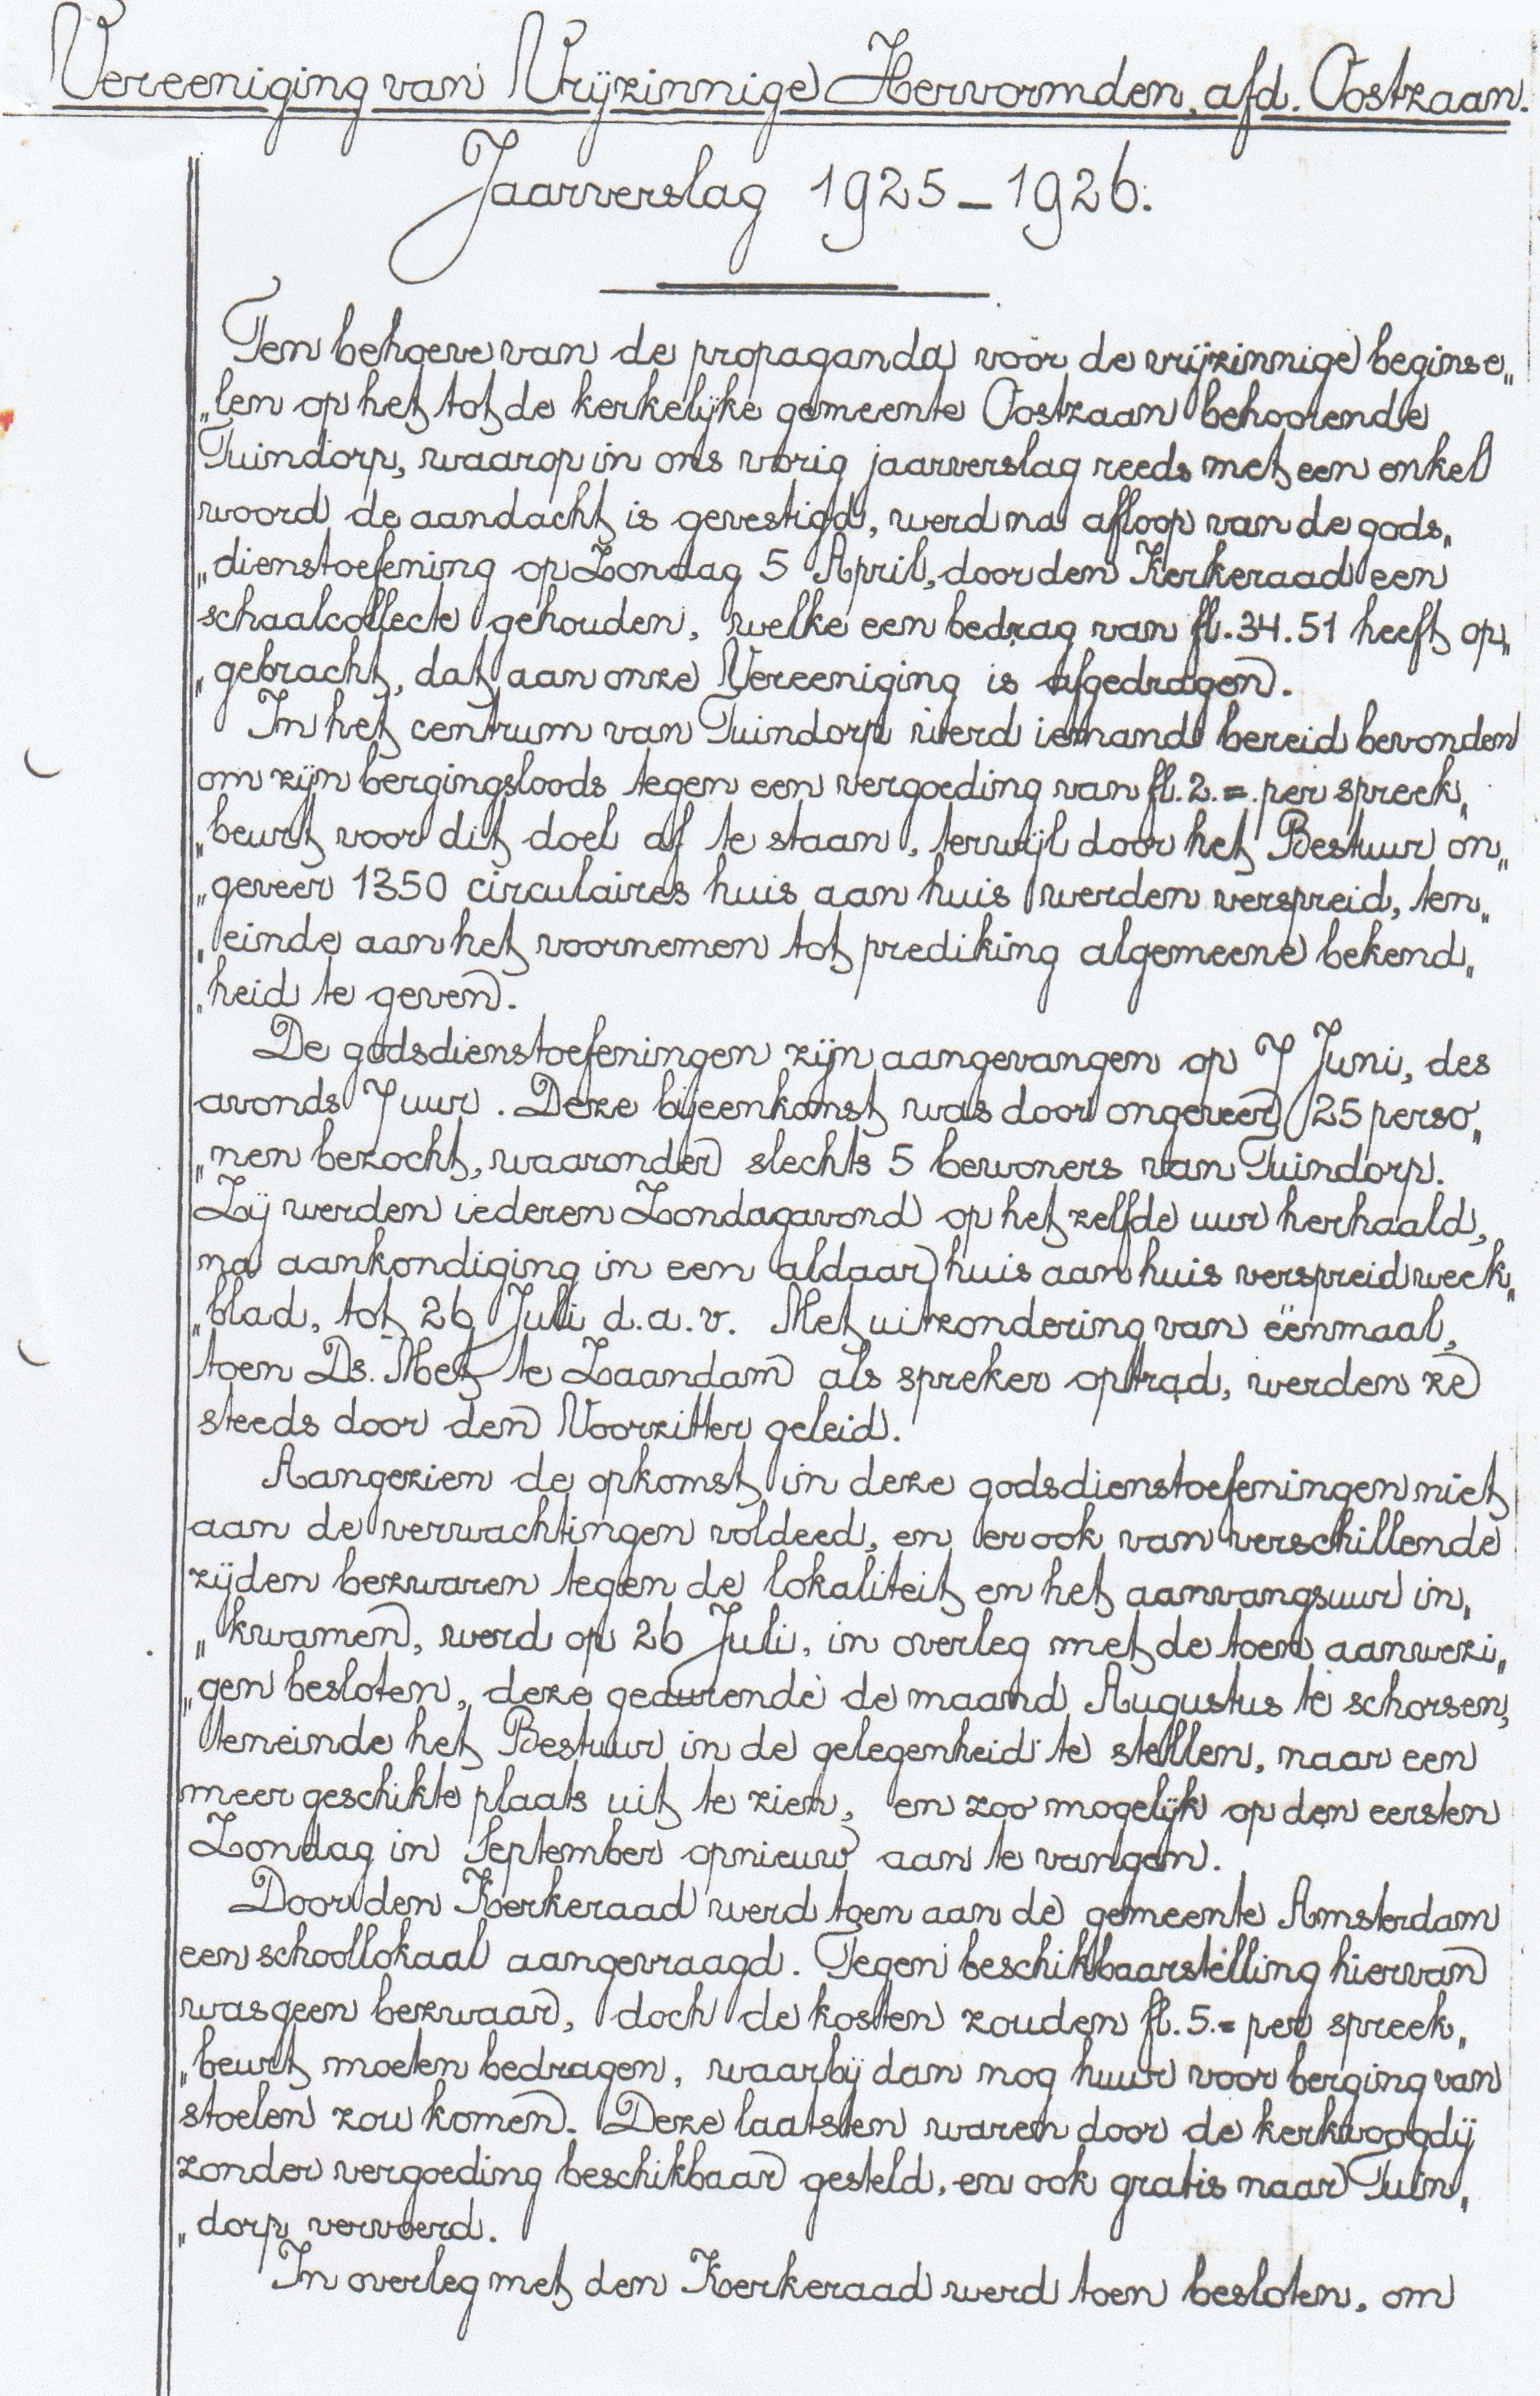 Vereeniging van Vrijzinnige Hervormden, afd. Oostzaan.
Jaarverslag 1925 – 1926.
Ten behoeve van de propaganda voor de vrijzinnige beginse„
„len op het tot de kerkelijke gemeente Oostzaan behoorende
Tuindorp, waarop in ons vorig jaarverslag reeds met een enkel
woord de aandacht is gevestigd, werd na afloop van de gods„
„dienstoefening op Zondag 5 April, door den Kerkeraad een
schaalcollecte gehouden, welke een bedrag van fl. 34.51 heeft op„
„gebracht, dat aan onze Vereeniging is afgedragen.
In het centrum van Tuindorp werd iemand bereid bevonden
om zijn bergingsloods tegen een vergoeding van fl. 2.= per spreek„
„beurt voor dit doel af te staan, terwijl door het Bestuur on„
„geveer 1350 circulaires huis aan huis werden verspreid, ten„
„einde aan het voornemen tot prediking algemeene bekend„
„heid te geven.
De godsdienstoefeningen zijn aangevangen op 7 Juni, des
avonds 7 uur. Deze bijeenkomst was door ongeveer 25 perso„
„nen bezocht, waaronder slechts 5 bewoners van Tuindorp.
Zij werden iederen Zondagavond op het zelfde uur herhaald,
na aankondiging in een aldaar huis aan huis verspreid week„
„blad, tot 26 Juli d.a.v. Met uitzondering van ëënmaal,
toen Ds. Metz te Zaandam als spreker optrad, werden ze
steeds door den Voorzitter geleid.
Aangezien de opkomst in deze godsdienstoefeningen niet
aan de verwachtingen voldeed, en er ook van verschillende
zijden bezwaren tegen de lokaliteit en het aanvangsuur in„
„kwamen, werd op 26 Juli, in overleg met de toen aanwezi„
„gen besloten, deze gedurende de maand Augustus te schorsen,
teneinde het Bestuur in de gelegenheid te stellen, naar een
meer geschikte plaats uit te zien, en zoo mogelijk op den eersten
Zondag in September opnieuw aan te vangen.
Door den Kerkeraad werd toen aan de gemeente Amsterdam
een schoollokaal aangevraagd. Tegen beschikbaarstelling hiervan
was geen bezwaar, doch de kosten zouden fl. 5.= per spreek„
„beurt moeten bedragen, waarbij dan nog huur voor berging van
stoelen zou komen. Deze laatsten waren door de kerkvoogdij
zonder vergoeding beschikbaar gesteld, en ook gratis naar Tuin„
„dorp vervoerd.
In overleg met den Kerkeraad werd toen besloten, om